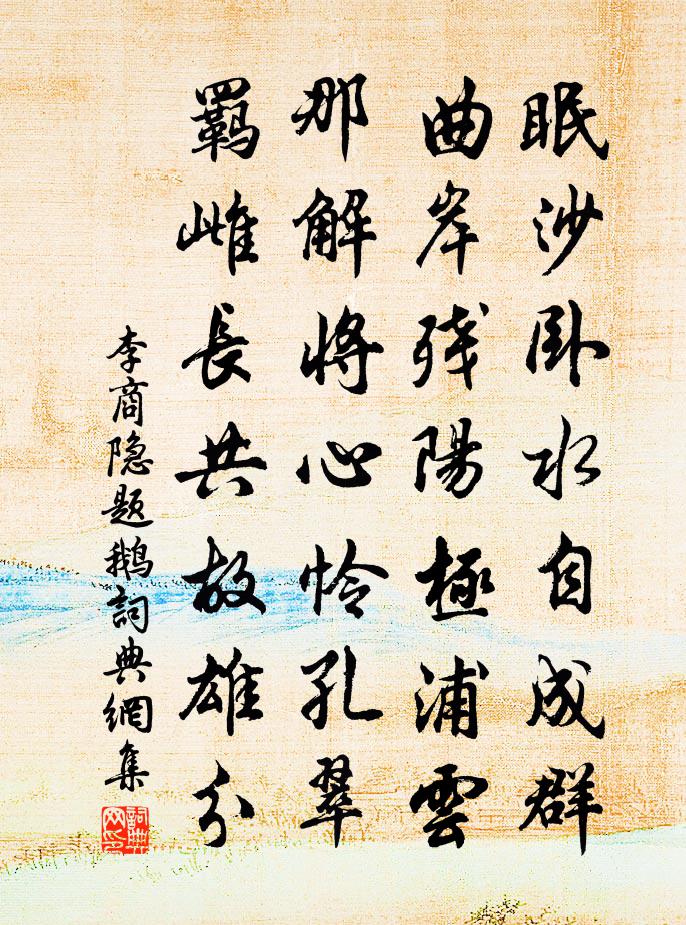 眠沙卧水自成群
曲岸残陽極浦雲
那解将心怜孔翠
羈雌長共故雄分
李商隐题鵝詞典網集
詞典網印